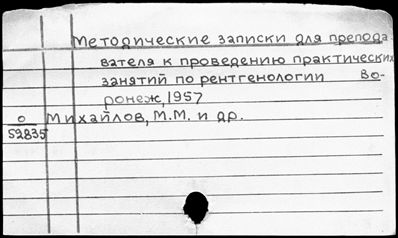 Методические записки для препода
вателя к проведению практических
занятий по рентгенологии Во-
ронеж, 1957
о Михайлов, М.М. и др.
52835